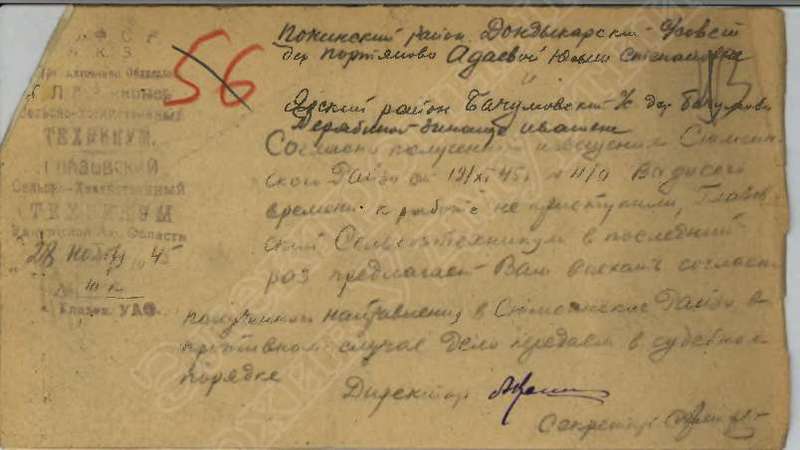 РСФСР
НКЗ
ГЛАЗОВСКИЙ
Сельско-Хозяйственный
ТЕХНИКУМ
"28" ноября 1945
г. Глазов, УАССР.
56
Понинский район Дондыкарский с/совет
дер Портяново Адаевой Юлии Степановне
и
Ярский район Бачумовский с дер Бачумово
Дерябиной Зинаиде Ивановне
Согласно полученного извещения Сюмсин-
ского Райзо от 12/XI 45г Вы до сего
времени к работе не приступили, Глазов
ский Сельхозтехникум в последний
раз предлагает Вам выехать согласно
полученного направления в Сюмсинское Райзо в
противном случае дело передаем в судебном
порядке
Директор
Секретарь